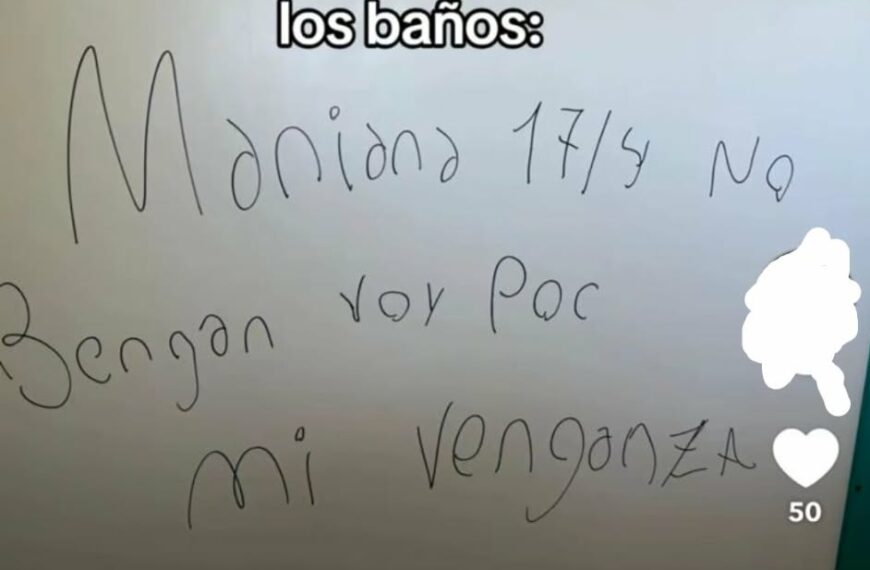 los baños:
Maniana 17/4 No
Bengan voy Por
mi venganzA
50